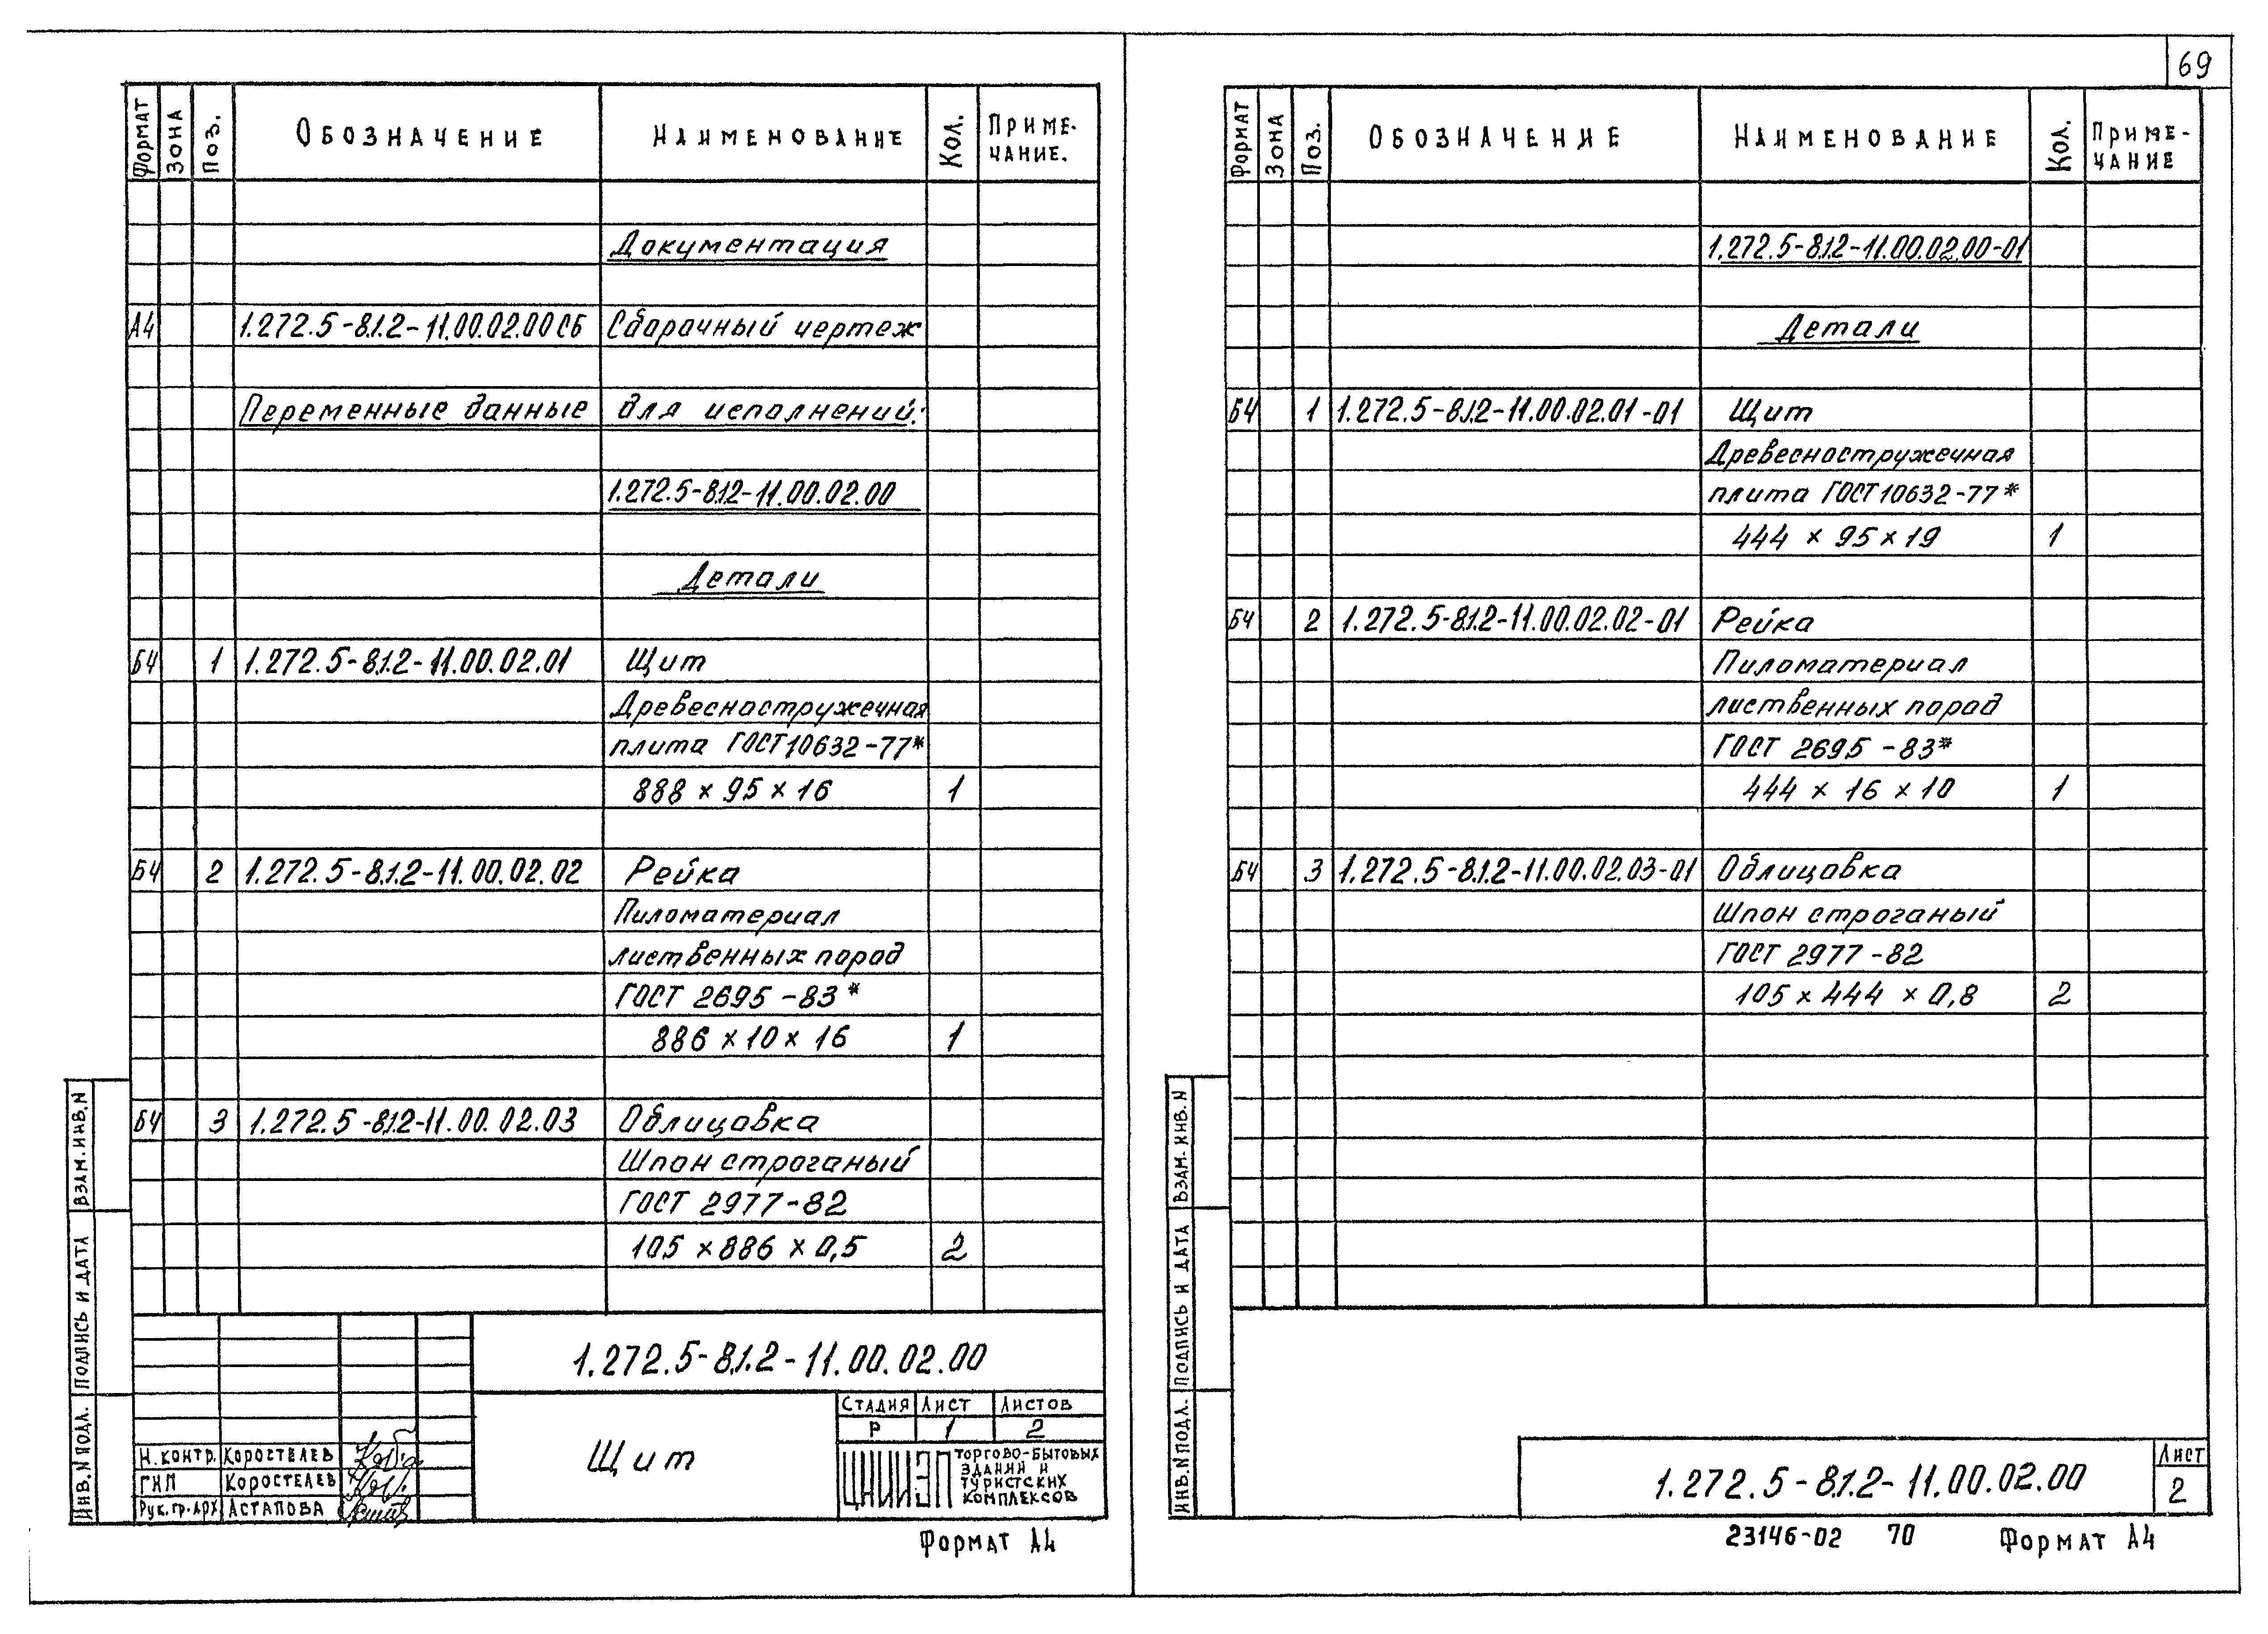 69
ФОРМАТ ЗОНА ПОЗ. ОБОЗНАЧЕНИЕ НАИМЕНОВАНИЕ КОЛ. ПРИМЕ-
ЧАНИЕ.
Документация
А4 1.272.5-8.1.2-11.00.02.00 СБ Сборочный чертеж
Переменные данные для исполнений:
1.272.5-8.1.2-11.00.02.00
Детали
БЧ 1 1.272.5-8.1.2-11.00.02.01 Щит
Древесностружечная
плита ГОСТ 10632-77*
888 × 95 × 16 1
БЧ 2 1.272.5-8.1.2-11.00.02.02 Рейка
Пиломатериал
лиственных пород
ГОСТ 2695-83*
886 × 10 × 16 1
БЧ 3 1.272.5-8.1.2-11.00.02.03 Облицовка
Шпон строганый
ГОСТ 2977-82
105 × 886 × 0,5 2
1.272.5-8.1.2-11.00.02.00
Щит
СТАДИЯ ЛИСТ ЛИСТОВ
Р 1 2
Н.КОНТР. КОРОСТЕЛЕВ
ГИП КОРОСТЕЛЕВ
РУК.ГР.АРХ АСТАПОВА
ЦНИИЭП ТОРГОВО-БЫТОВЫХ
ЗДАНИЙ И
ТУРИСТСКИХ
КОМПЛЕКСОВ
ИНВ.N ПОДЛ. ПОДПИСЬ И ДАТА ВЗАМ.ИНВ.N
ФОРМАТ А4
ФОРМАТ ЗОНА ПОЗ. ОБОЗНАЧЕНИЕ НАИМЕНОВАНИЕ КОЛ. ПРИМЕ-
ЧАНИЕ
1.272.5-8.1.2-11.00.02.00-01
Детали
БЧ 1 1.272.5-8.1.2-11.00.02.01-01 Щит
Древесностружечная
плита ГОСТ 10632-77*
444 × 95 × 19 1
БЧ 2 1.272.5-8.1.2-11.00.02.02-01 Рейка
Пиломатериал
лиственных пород
ГОСТ 2695-83*
444 × 16 × 10 1
БЧ 3 1.272.5-8.1.2-11.00.02.03-01 Облицовка
Шпон строганый
ГОСТ 2977-82
105 × 444 × 0,8 2
ИНВ.N ПОДЛ. ПОДПИСЬ И ДАТА ВЗАМ.ИНВ.N
1.272.5-8.1.2-11.00.02.00
ЛИСТ
2
23146-02 70 ФОРМАТ А4